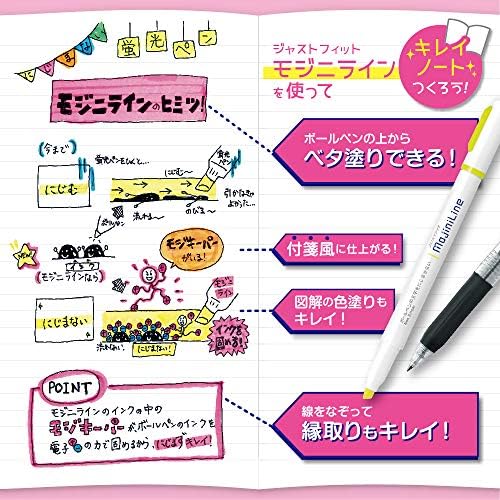 にじまない
蛍光ペン
モジニラインのヒミツ!
(今まで)
蛍光ペンをひくと…
にじむ…
蛍光ペン
にじむ
流れる…
のびる…
引かなきゃよかった…
ボールペン
NEW!
インク
(モジニラインなら)
モジキーパーがいる!
モジニライン
にじまない
流れない
にじまない!
インクを固める!
POINT
モジニラインのインクの中の
モジキーパーが、ボールペンのインクを
電子の力で固めるから、にじまずキレイ!
ジャストフィット
モジニライン
を使って
キレイ
ノート
つくろう!
ボールペンの上から
ベタ塗りできる!
付箋風に仕上がる!
図解の色塗りも
キレイ!
線をなぞって
縁取りもキレイ!
MojiniLine